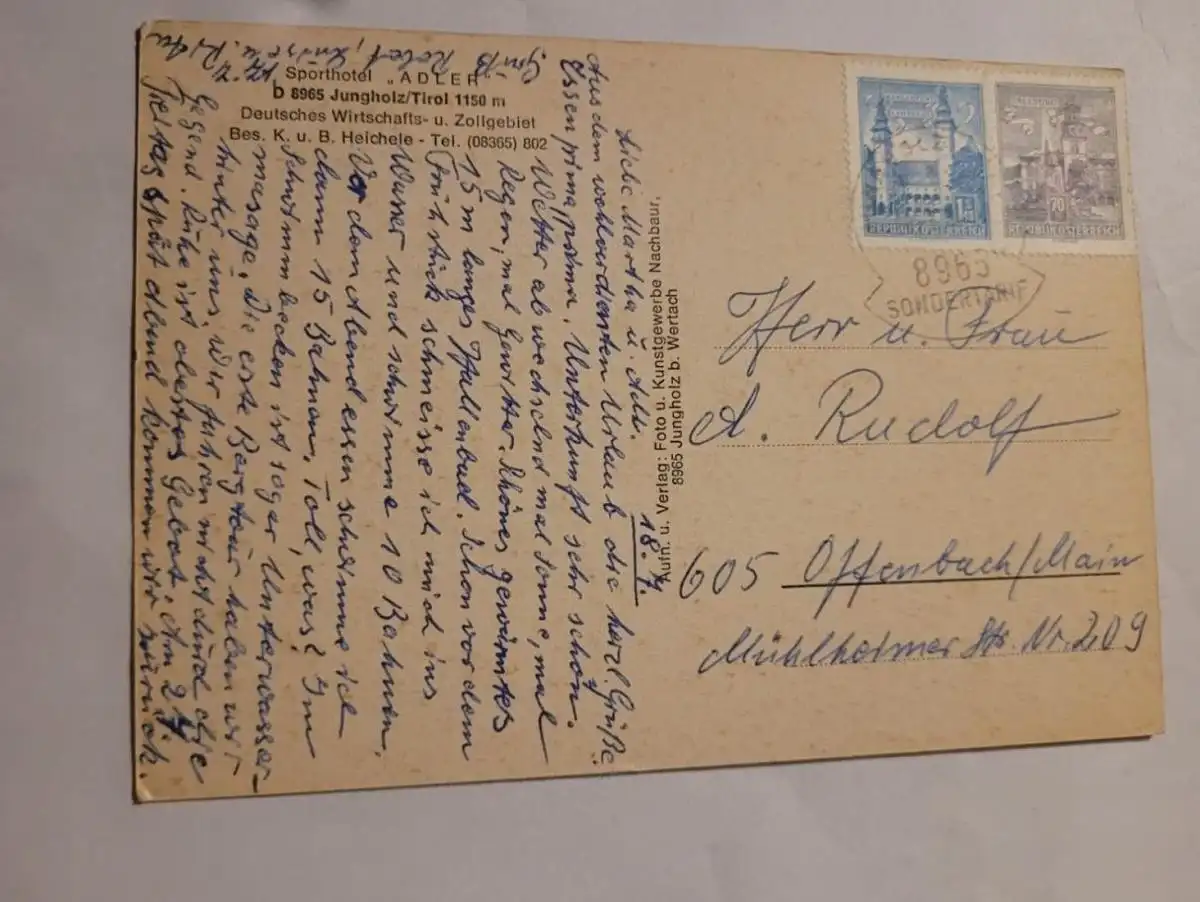 Sporthotel „ADLER"
b 8965 Jungholz/Tirol 1150 m
Deutsches Wirtschafts- u. Zollgebiet
Bes. K. u. B. Heichele - Tel. (08365) 802
18. 7.
Liebe Martha u. Adu.
Aus dem wohlverdienten Urlaub die herzl. Grüße.
Essen prima prima, Unterkunft sehr schön.
Wetter abwechselnd mal Sonne, mal
Regen, mal Gewitter. Schönes gewärmtes
15 m langes Hallenbad. Schon vor dem
Frühstück schmeisse ich mich ins
Wasser und schwimme 10 Bahnen.
Vor dem Abendessen schwimme ich
dann 15 Bahnen, Toll, was? Im
Schwimmbecken ist sogar Unterwasser-
masage. Die erste Bergtour haben wir
hinter uns. Wir fahren nicht durch die
Gegend. Ruhe ist oberstes Gebot. Am
Freitag spät abend kommen wir zurück.
Gruß Robert, u. Rita
Aufn. u. Verlag: Foto u. Kunstgewerbe Nachbaur,
8965 Jungholz b. Wertach
REPUBLIK ÖSTERREICH
70
REPUBLIK ÖSTERREICH
8965
SONDERTARIF
Herr u. Frau
A. Rudolf
605 Offenbach/Main
Mühlheimer Str. Nr. 209